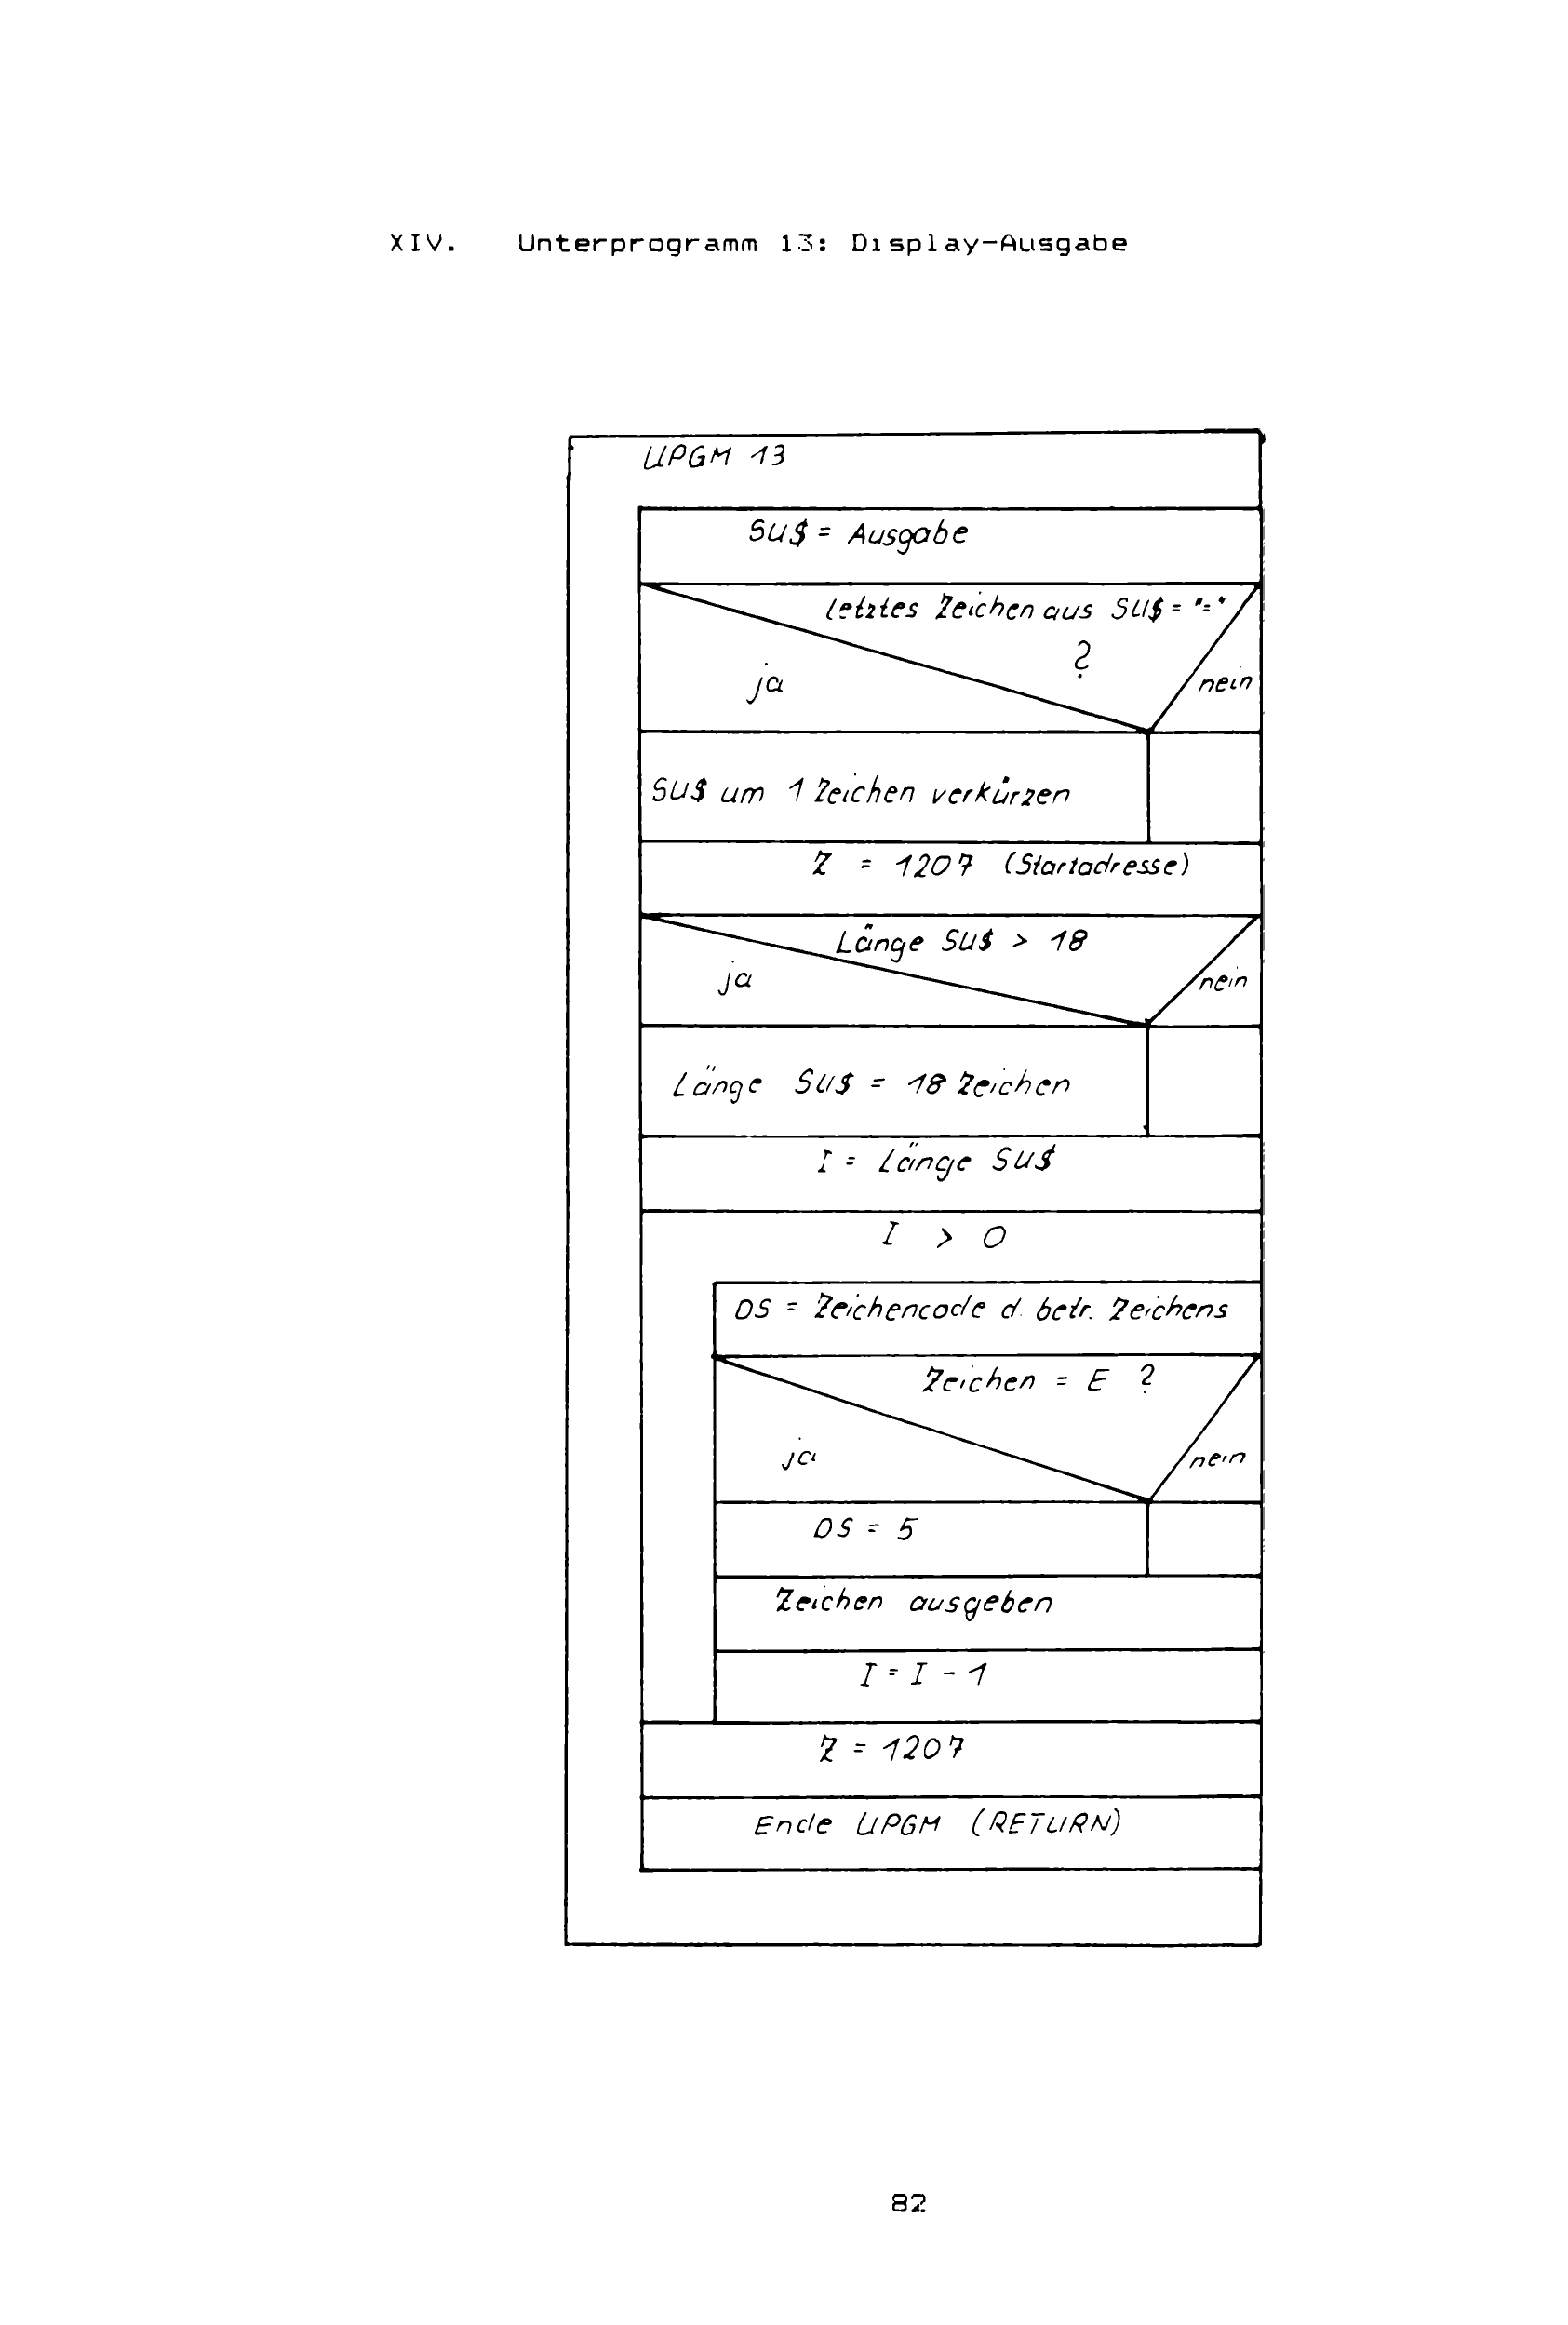 XIV. Unterprogramm 13: Display-Ausgabe
UPGM 13
SU$ = Ausgabe
letztes Zeichen aus SU$ = "="
?
ja
nein
SU$ um 1 Zeichen verkürzen
Z = 1207 (Startadresse)
Länge SU$ > 18
ja
nein
Länge SU$ = 18 Zeichen
I = Länge SU$
I > 0
DS = Zeichencode d. betr. Zeichens
Zeichen = E ?
ja
nein
DS = 5
Zeichen ausgeben
I = I - 1
Z = 1207
Ende UPGM (RETURN)
82